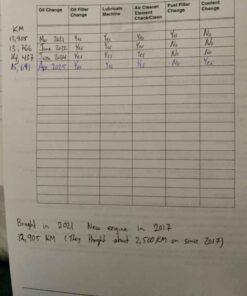 Oil Change Oil Filter Change Lubricate Machine Air Cleaner Element Check/Clean Fuel Filter Change Coolant Change
KM
12,905 2021 Yes Yes Yes Yes No
13,766 June 2022 Yes Yes Yes No No
14,437 June 2024 Yes Yes Yes No No
15,691 Apr 2025 Yes Yes Yes No Yes
Bought in 2021 New engine in 2017
12,905 KM (They thought about 2,500 KM on since 2017)